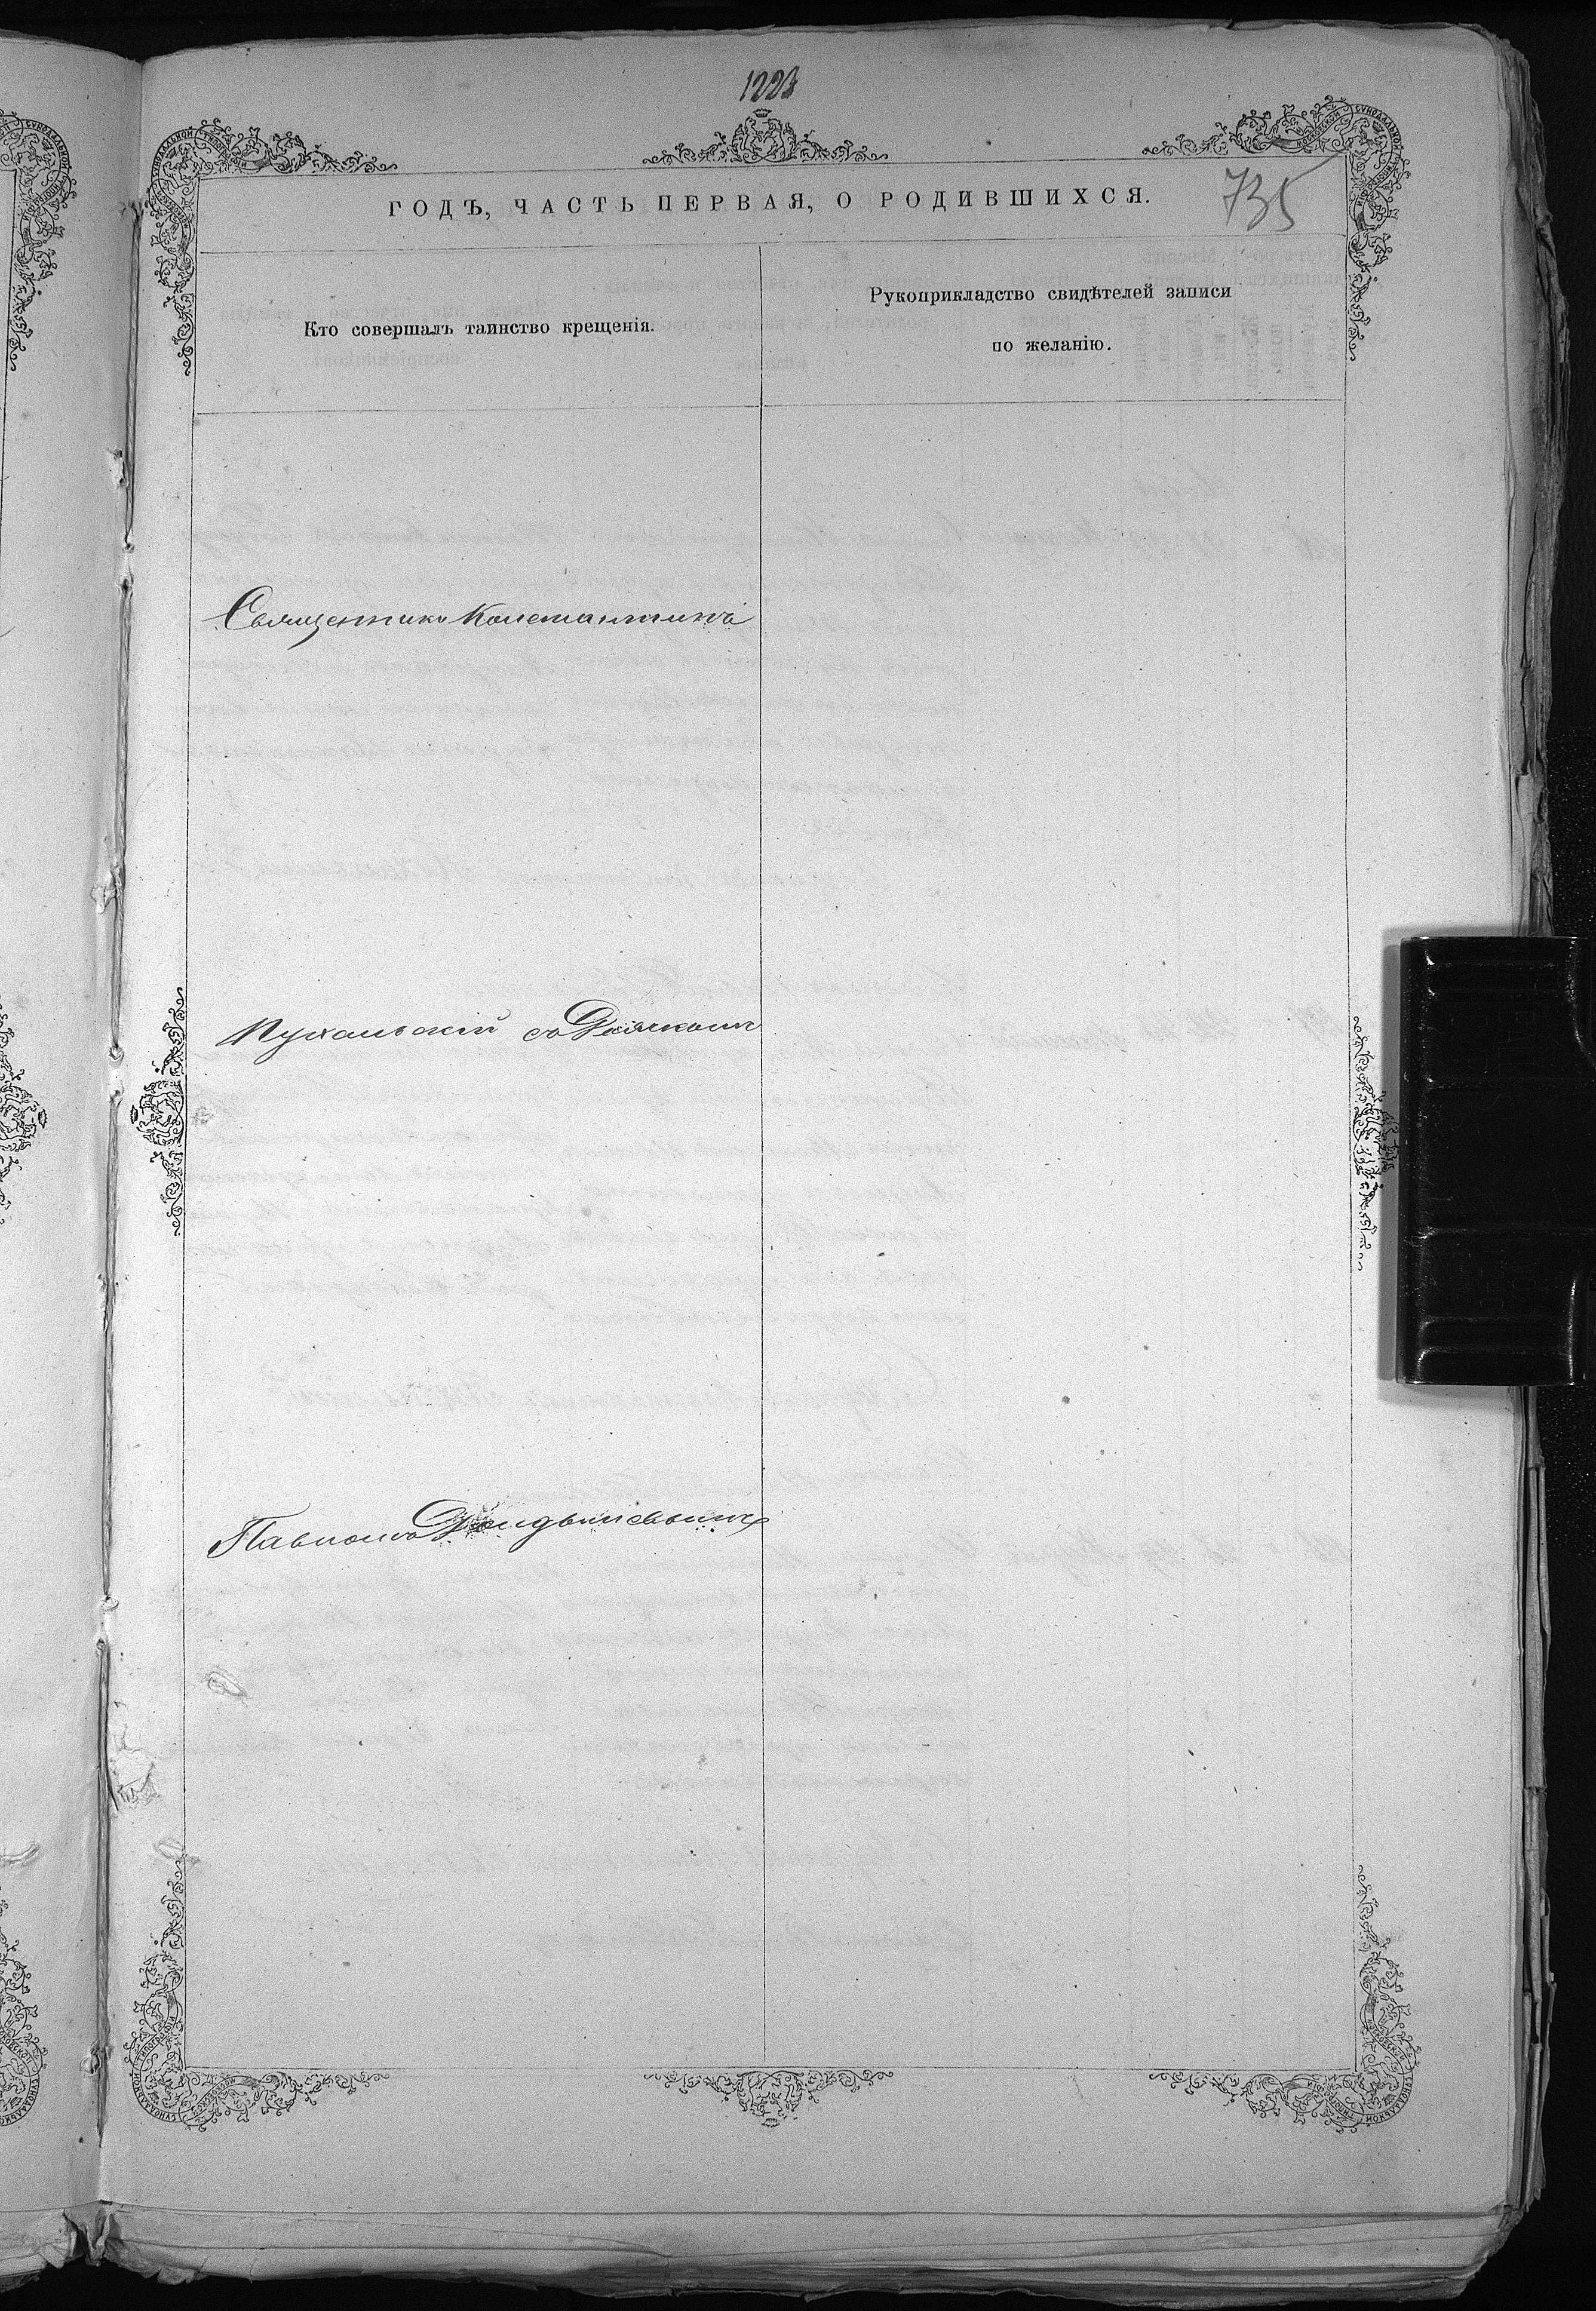 1223
735
ГОДЪ, ЧАСТЬ ПЕРВАЯ, О РОДИВШИХСЯ.
Кто совершалъ таинство крещенія.
Рукоприкладство свидѣтелей записи
по желанію.
Священникъ Константинъ
Пухальскій съ Дьячкомъ
Павломъ